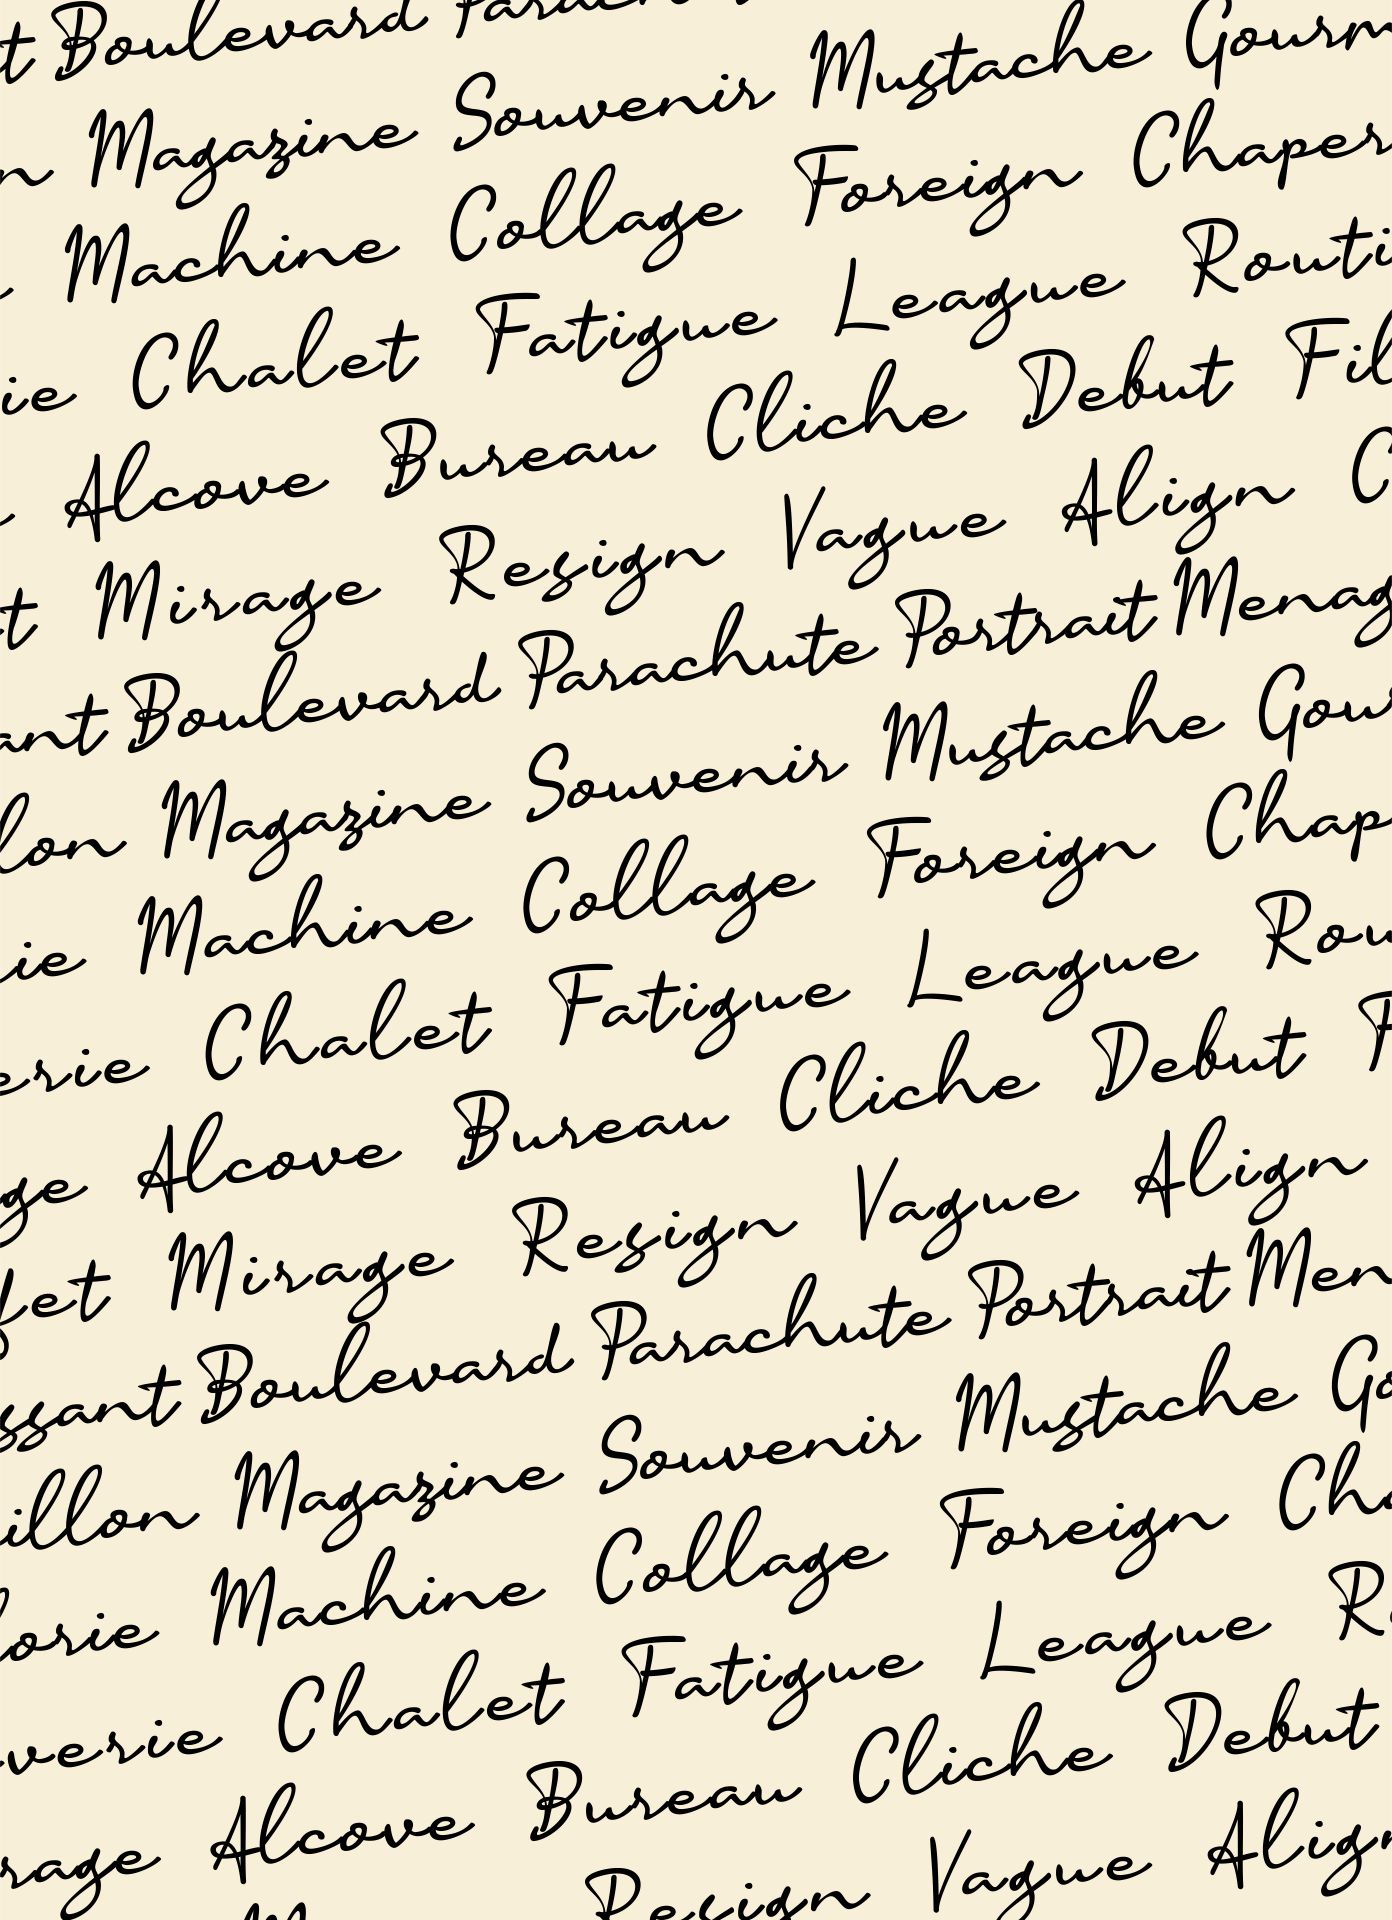 t Boulevard
n Magazine Souvenir Mustache Gourm
Machine Collage Foreign Chaper
ie Chalet Fatigue League Routi
Alcove Bureau Cliche Debut Fil
t Mirage Resign Vague Align C
ant Boulevard Parachute Portrait Menag
lon Magazine Souvenir Mustache Gour
ie Machine Collage Foreign Chap
erie Chalet Fatigue League Rou
ge Alcove Bureau Cliche Debut F
fet Mirage Resign Vague Align
ssant Boulevard Parachute Portrait Men
illon Magazine Souvenir Mustache Go
lorie Machine Collage Foreign Cha
verie Chalet Fatigue League Ro
rage Alcove Bureau Cliche Debut
Resign Vague Align